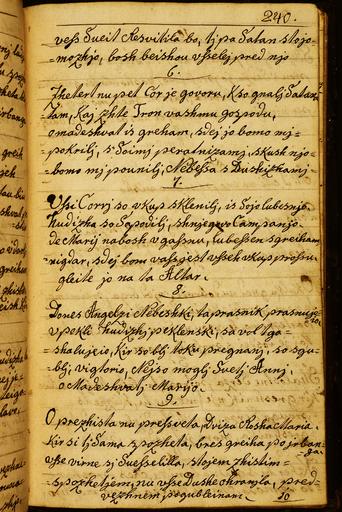 240.
vess Sueit Resvitila bo, tj pa Satan stojo-
mozhjo, bosh beishou vsselej pred njo
6.
tam, Kaj zhte Tron vashmu gospodu,
omadeshvat is greham, sdej jo bomo mj-
pokrilj, s Soimj peratnizamj, skush njo-
bomo mj pounilj, Nebessa s Dushizhamj
7.
Vssi Corrj so vkup sklenilj, is Sojo lubesnjo
hudizha so Sapodilj, shnjegovo Camsanjo
de Marij nabosh vgassnu, lubessen sgreiham
nigdar, sdej bom vass jest vsseh vkup prossu
gleite jo na ta Altar.
8.
Dones Angelzi Nebeshki, ta prasnik prasnujejo
vpekli hudizhj peklenski, sa vol tga-
shalujejo, Kir so blj toku pregnanj, so sgu-
blj vigtorio, Nejso moglj Svetj Annj
omadeshvatj Marijo.
9.
O prezhista nu pressveta Diviza Rosha Maria
Kir si tj Sama spozheta, bres greiha poj
vsse virne sj Suesselilla, stojem zhistim-
spozhetjem, nu vsse Dushe ohranila, pred
vezhnem pogubleinam.
10